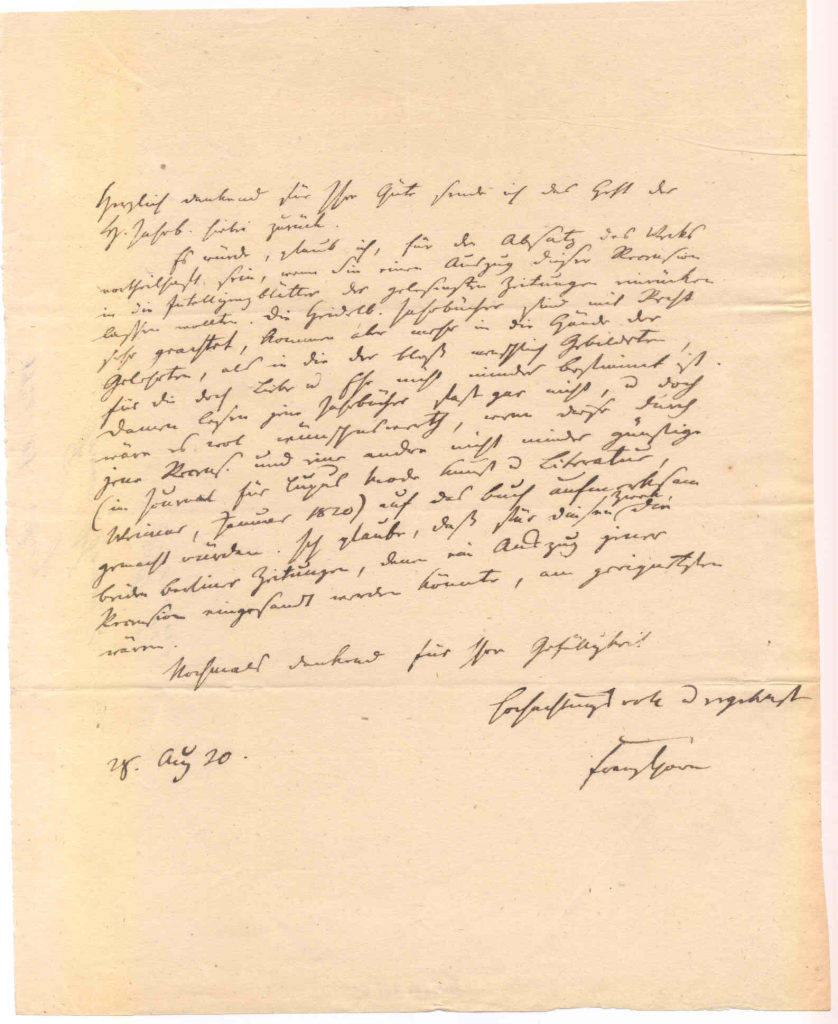 Herzlich dankend für Ihre Güte sende ich das Heft der
H. Jahrb. hiebei zurück.
Es würde, glaub ich, für den Absatz des Werks
vortheilhaft sein, wenn Sie einen Auszug dieser Recension
in die Intelligenzblätter der gelesensten Zeitungen einrücken
lassen wollten. Die Heidelb. Jahrbücher sind mit Recht
sehr geachtet, kommen aber mehr in die Hände der
Gelehrten, als in die der bloß menschlich Gebildeten,
für die doch Liebe u Ehe nicht minder bestimmt ist.
Damen lesen jene Jahrbücher fast gar nicht, u doch
wäre es wol wünschenswerth, wenn diese durch
jene Recens. und eine andre nicht minder günstige
(im Journal für Luxus Mode Kunst u Literatur,
Weimar, Januar 1820) auf das Buch aufmerksam
gemacht würden. Ich glaube, daß für diesen Zweck die
beiden berliner Zeitungen, denen ein Auszug jener
Recension eingesandt werden könnte, am geeignetsten
wären.
Nochmals dankend für Ihre Gefälligkeit
hochachtungsvoll u ergebenst
28. Aug 20.
Franz Horn